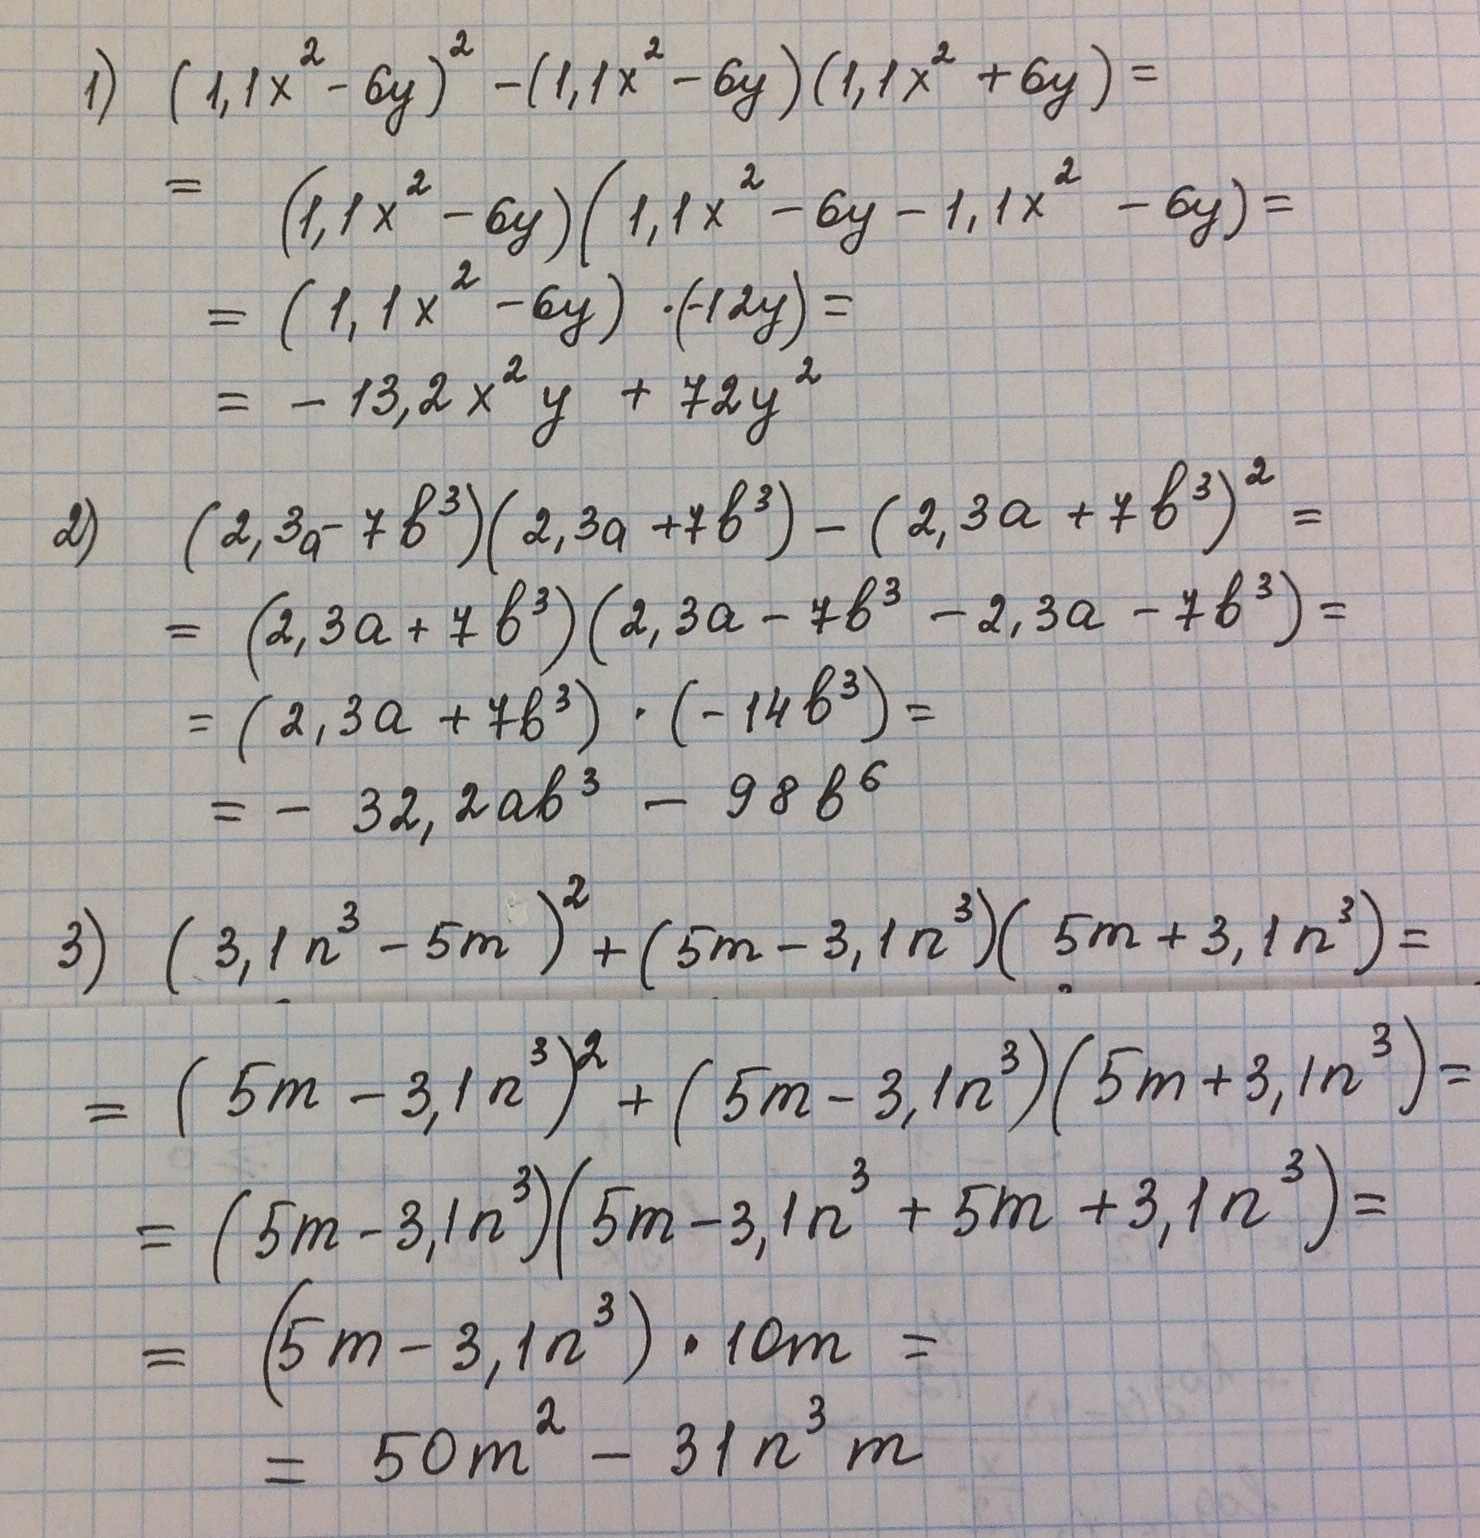 1) (1,1x² - 6y)² - (1,1x² - 6y)(1,1x² + 6y) =
= (1,1x² - 6y)(1,1x² - 6y - 1,1x² - 6y) =
= (1,1x² - 6y) · (-12y) =
= - 13,2x²y + 72y²
2) (2,3a - 7b³)(2,3a + 7b³) - (2,3a + 7b³)² =
= (2,3a + 7b³)(2,3a - 7b³ - 2,3a - 7b³) =
= (2,3a + 7b³) · (-14b³) =
= - 32,2ab³ - 98b⁶
3) (3,1n³ - 5m)² + (5m - 3,1n³)(5m + 3,1n³) =
= (5m - 3,1n³)² + (5m - 3,1n³)(5m + 3,1n³) =
= (5m - 3,1n³)(5m - 3,1n³ + 5m + 3,1n³) =
= (5m - 3,1n³) · 10m =
= 50m² - 31n³m